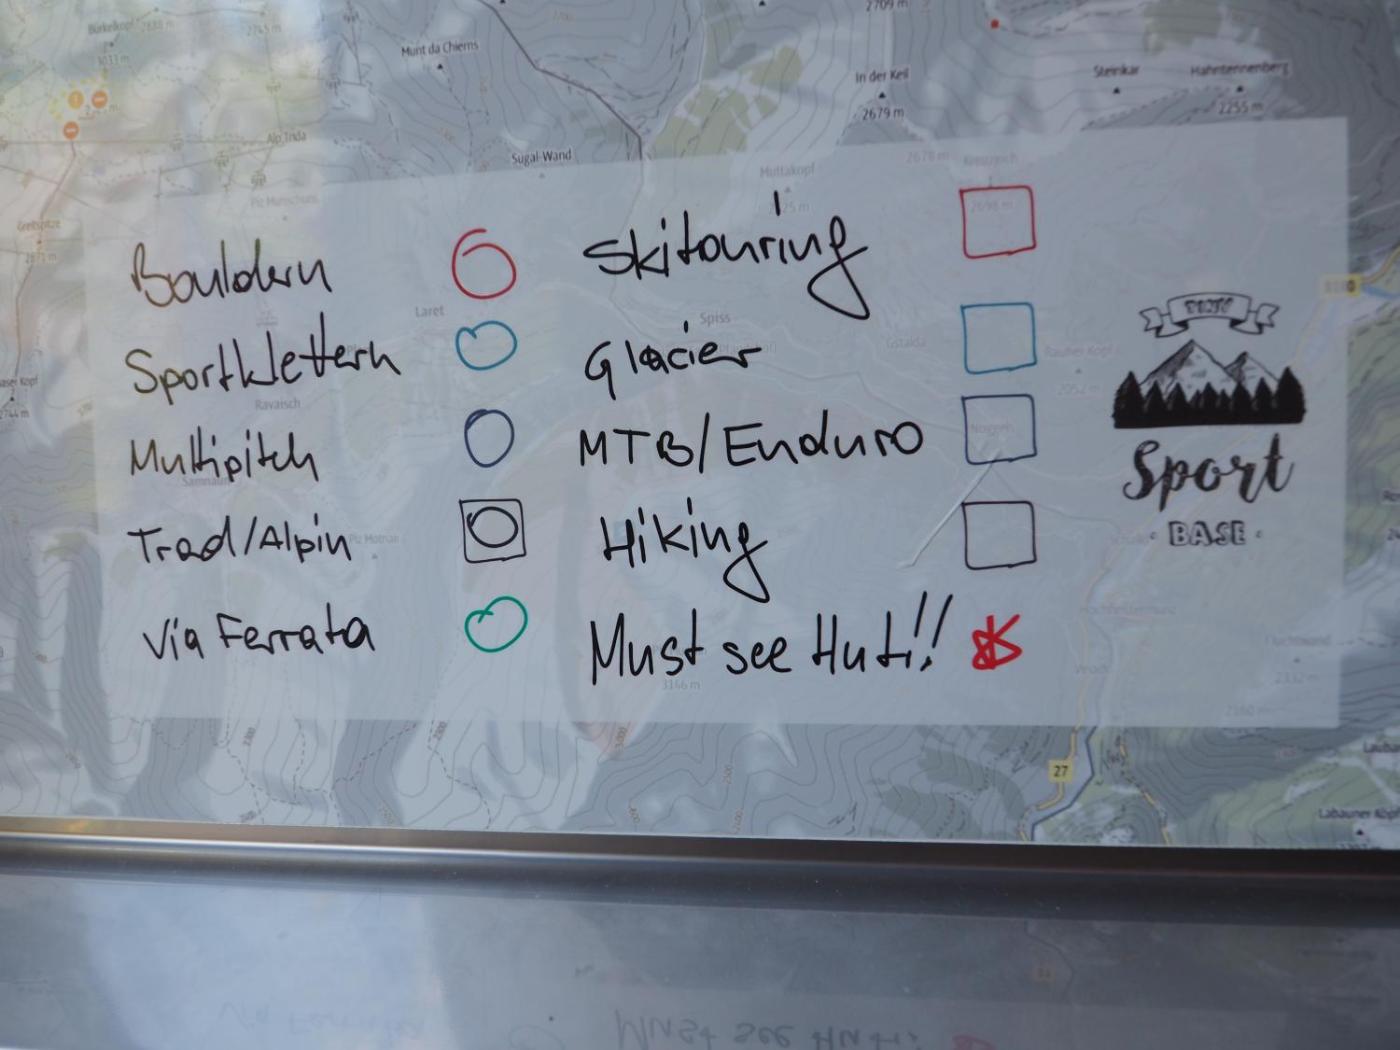 Bürkelkopf 2830 m
3033 m
Munt da Chierns
2709 m
In der Keil
2679 m
Steinkar
Hahntennenberg
2255 m
Alp Trida
Sugal-Wand
Piz Munschuns
Greitspitze
2871 m
Muttakopf
2678 m
2698 m
Bouldern
Skitouring
Laret
Spiss
Gstalda
Sportklettern
Glacier
Ravaisch
Multipitch
MTB/Enduro
Noggels
Samnaun
Trad/Alpin
Hiking
Via Ferrata
Must see Hut!!
3146 m
Sport
BASE
27